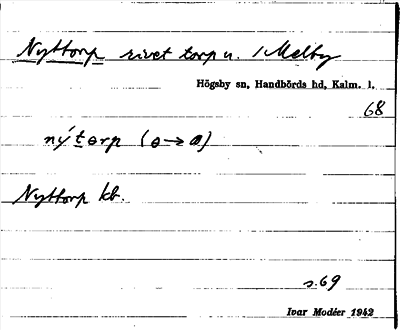 Nyttorp rivet torp u. 1 Melby
Högsby sn, Handbörds hd, Kalm. l.
68
nýtɵrp (ɵ→ɑ)
Nyttorp kb.
s. 69
Ivar Modéer 1942